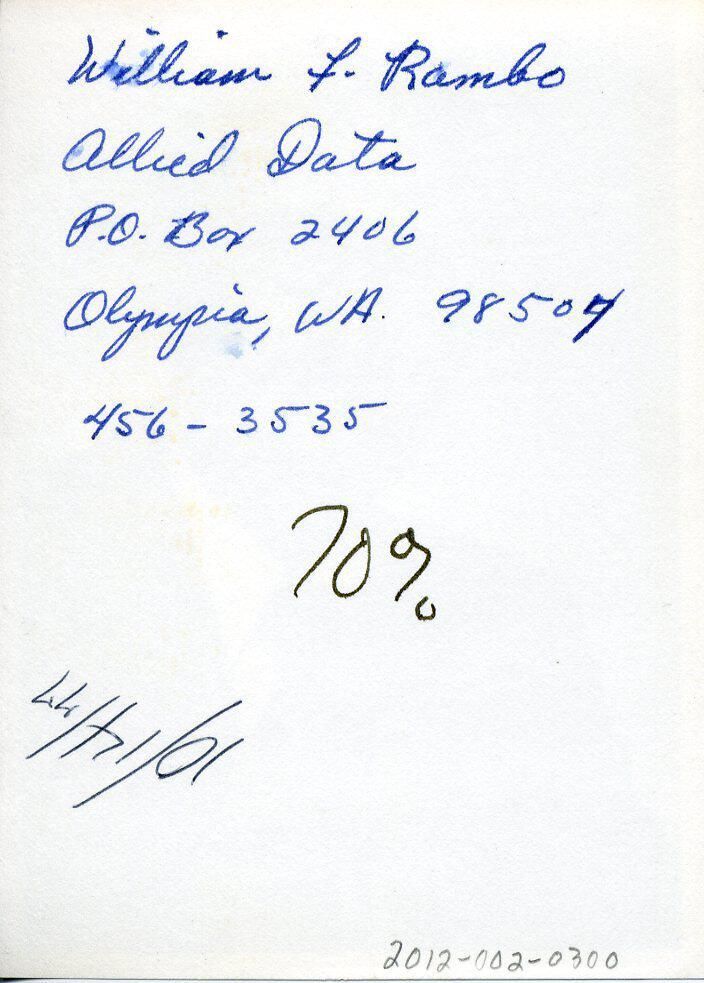 William F. Rambo
Allied Data
P.O. Box 2406
Olympia, WA. 98507
456-3535
70%
10/14/77
2012-002-0300